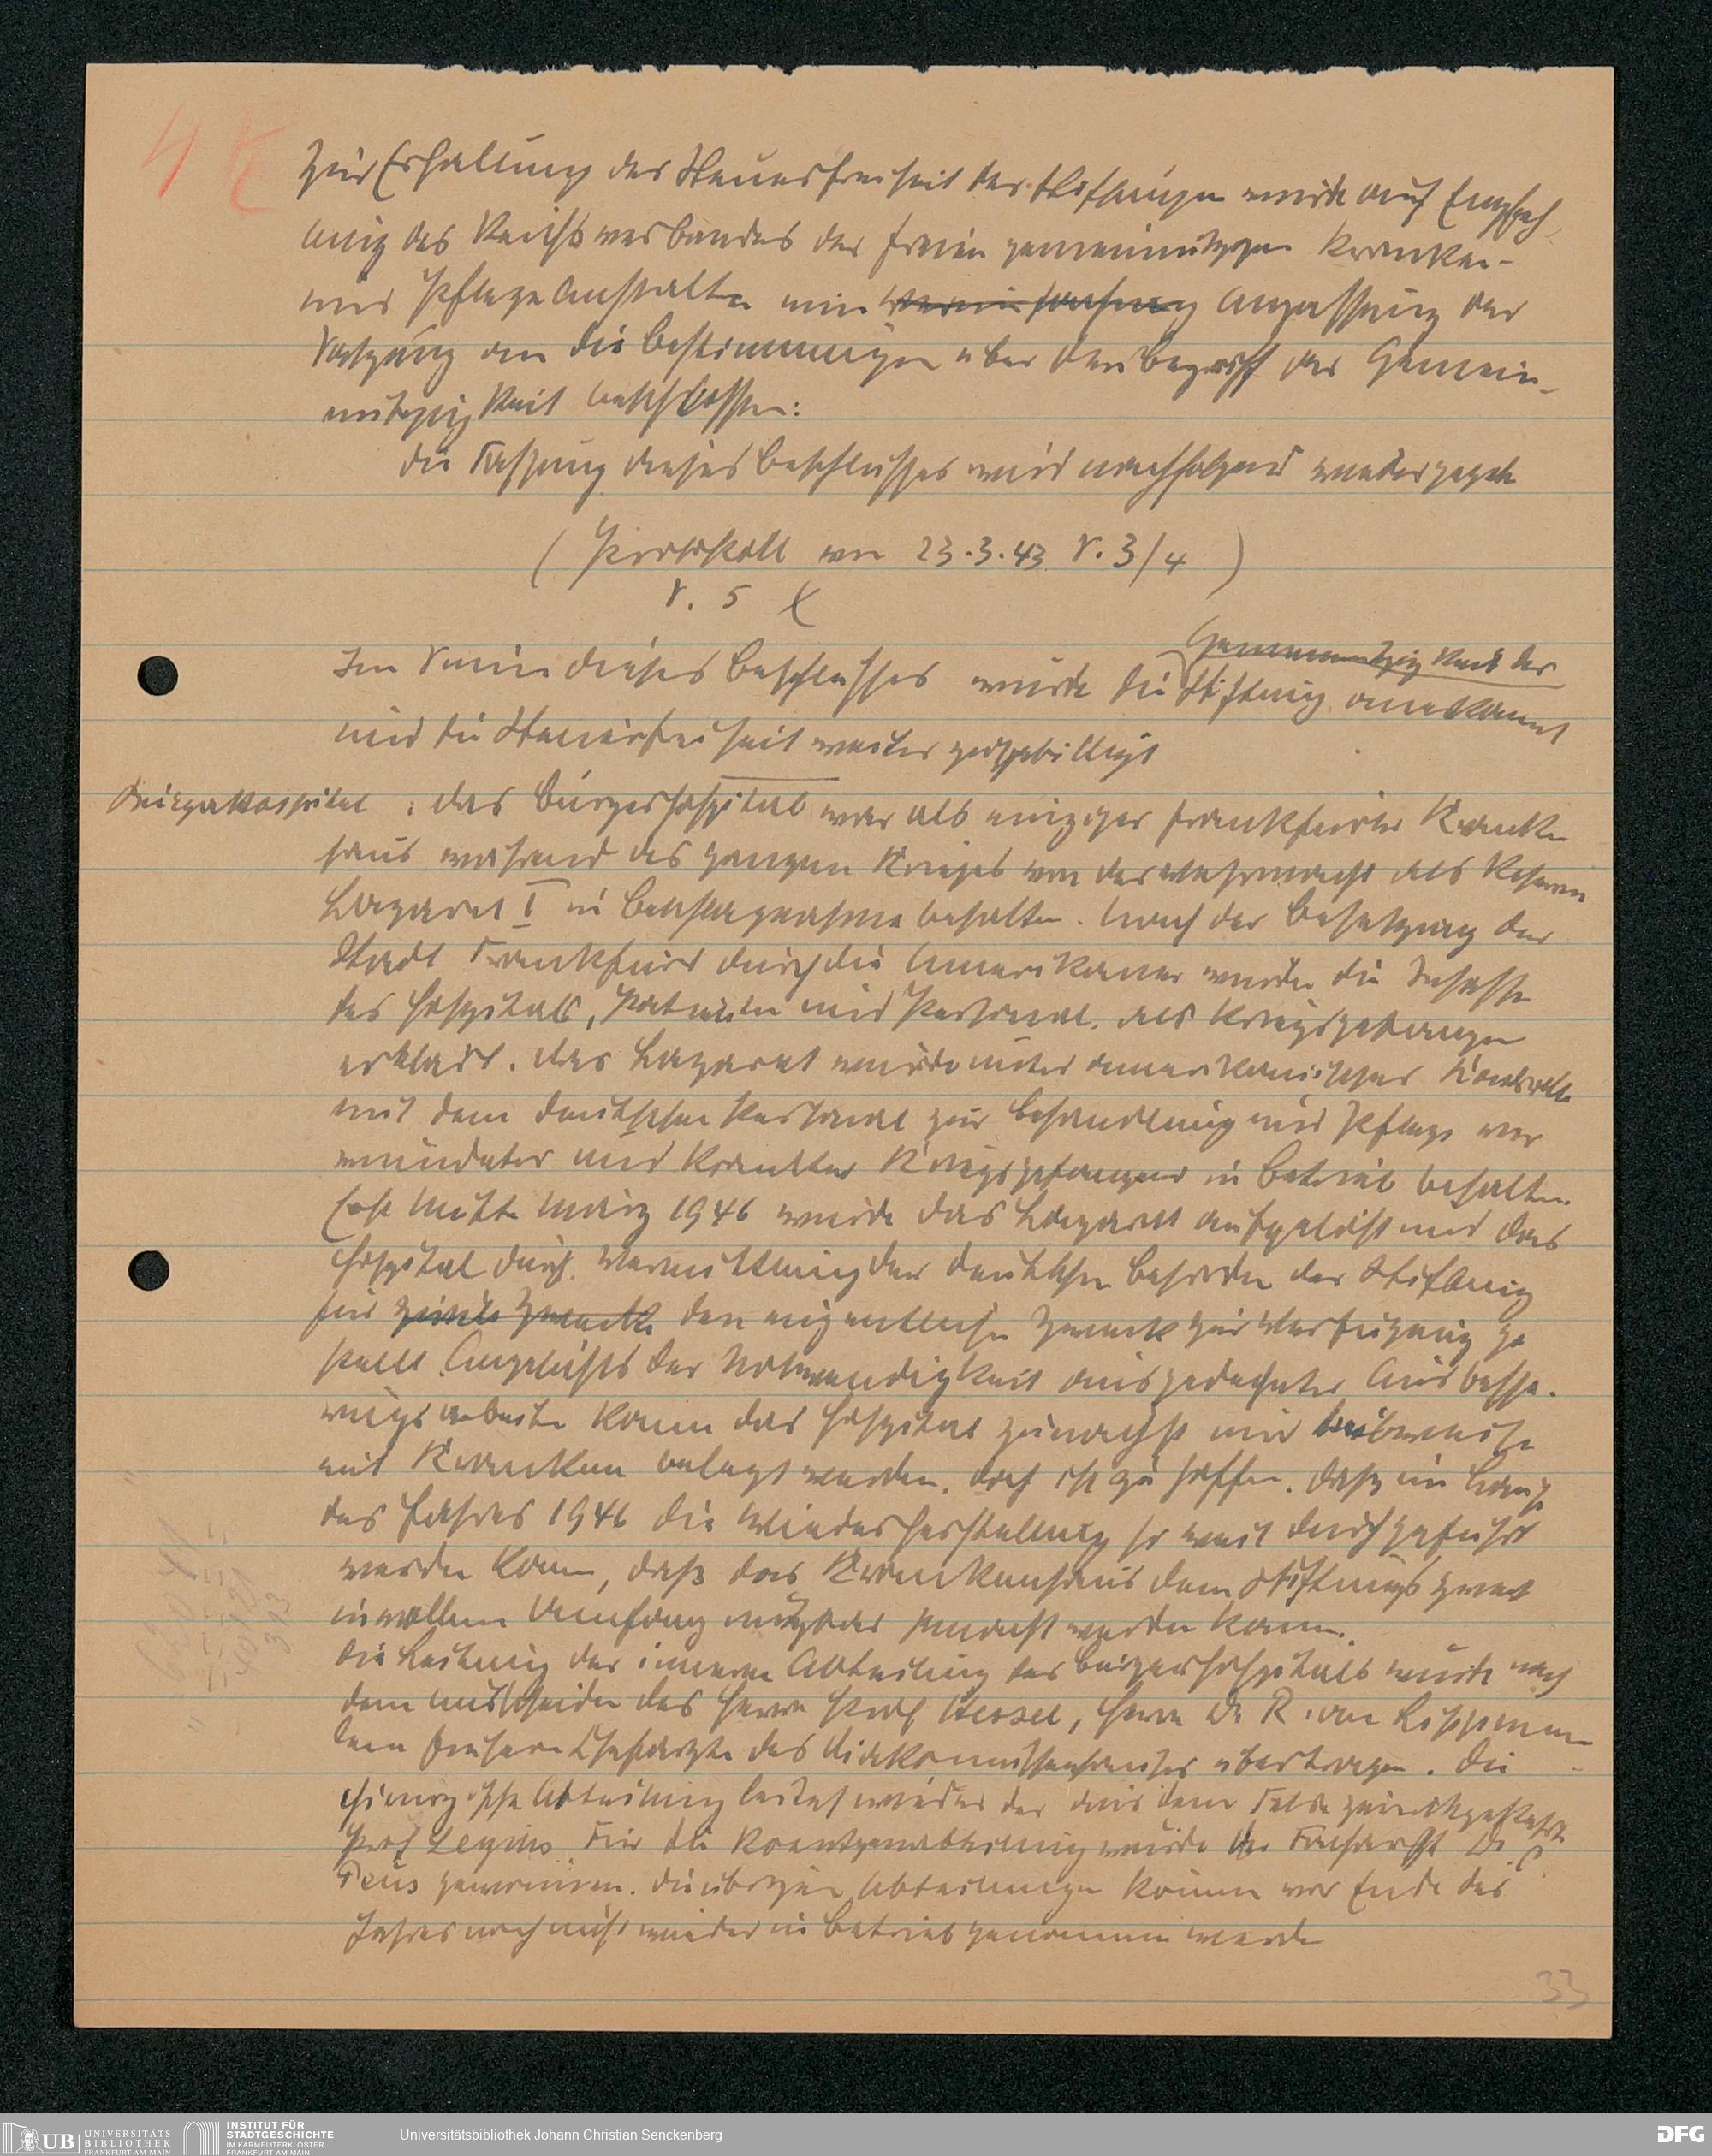 4
Zur Erhaltung der Steuerfreiheit der Stiftungen wurde auf Empfeh-
lung des Reichsverbandes der freien gemeinnützigen Kranken-
und Pflegeanstalten eine Anpassung der
Satzung an die Bestimmungen über den Begriff der Gemein-
nützigkeit beschlossen:
Die Fassung dieses Beschlusses wird nachfolgend wiedergegeben
( Protokoll vom 23.3.43 S. 3/4 )
S. 5
Gemeinnützigkeit der
Im Sinne dieses Beschlusses wurde die Stiftung anerkannt
und die Steuerfreiheit weiter zugebilligt
: Das Bürgerhospital war als einziges Frankfurter Kranken
haus während des ganzen Krieges von der Wehrmacht als Reserve
Lazaret I in Beschlagnahme behalten. Nach der Besetzung der
Stadt Frankfurt durch die Amerikaner wurden die Insassen
des Hospitals, Patienten und Personal, als Kriegsgefangen
erklärt. Das Lazaret wurde unter amerikanischer Kontrolle
mit dem deutschen Personal zur Behandlung und Pflege ver
wundeter und kranker Kriegsgefangener in Betrieb behalten.
Erst Mitte März 1946 wurde das Lazarett aufgelöst und das
Hospital durch Vermittlung der deutschen Behörden der Stiftung
für zivile Zwecke den eigentlichen Zweck zur Verfügung ge
stellt. Angesichts der Notwendigkeit ausgedehnter Ausbesse-
rungsarbeiten kann das Hospital zunächst nur teilweise
mit Kranken belegt werden. doch ist zu hoffen, daß im Laufe
des Jahres 1946 die Wiederherstellung so weit durchgeführt
werden kann, daß das Krankenhaus dem Stiftungszweck
in vollem Umfang nutzbar gemacht werden kann.
Die Leitung der inneren Abteilung des Bürgerhospitals wurde nach
dem Ausscheiden des Herrn Prof Hessel, Herrn Dr R. von Lippmann
dem früheren Chefarzte des Diakonissenhauses übertragen. Die
chirurgische Abteilung leitet wieder der aus dem Felde zurückgekehrte
Prof Für die Roentgenabteilung wurde der Facharzt Dr
gewonnen. Die übrigen Abteilungen können vor Ende des
Jahres noch nicht wieder in Betrieb genommen werden
33
UB UNIVERSITÄTS
BIBLIOTHEK
FRANKFURT AM MAIN
INSTITUT FÜR
STADTGESCHICHTE
IM KARMELITERKLOSTER
FRANKFURT AM MAIN
Universitätsbibliothek Johann Christian Senckenberg
DFG